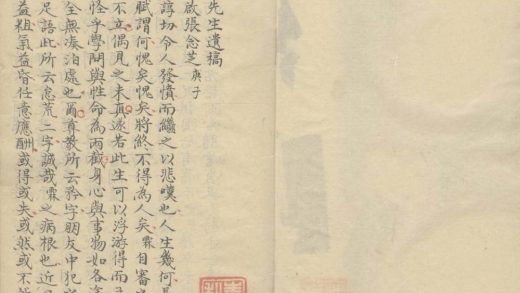 先生遺稿
啟張念芝庚子
諄切令人發憤而繼之以悲嘆也人生幾何
賦謂何愧矣愧矣將終不得為人矣霖自審
不立偶見之未真遂若此生可以浮游得而
怪乎學問與性命為兩截身心與事物如各
全無湊泊處也酉尊教所云矜字朋友中犯
足語此所云怠荒二字誠哉霖之病根也近
益粗氣益昏任意應酬或得或失或然或不